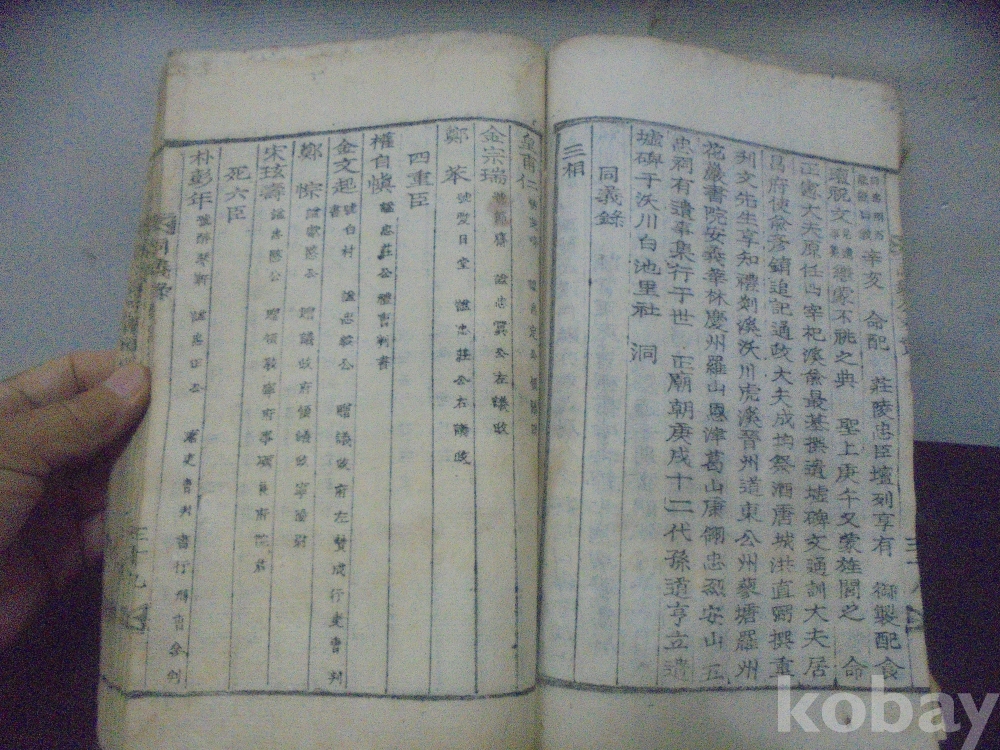 辛亥 命配 莊陵忠臣壇列享有 御製配食
壇祝文 繼蒙不祧之典 聖上庚午又蒙旌閭之 命
正憲大夫原任 宰 最 撰遺墟碑文通訓大夫居
昌府使 追記通政大夫成均祭酒唐城洪直弼撰重
刊文先生享知禮 溪沃川虎溪晉州道東公州蓼塘羅州
花巖書院安義 慶州羅山恩津葛山康 忠烈安山五
忠祠有遺事集行于世 正廟朝庚戌十二代孫道亨立遺
墟碑于沃川白池里社 洞
同義錄
三相
皇甫仁
金宗瑞 號節齋 諡忠翼公左議政
鄭苯 號愛日堂 諡忠莊公右議政
四重臣
權自愼 諡忠莊公 禮曹判書
金文起 號白村 諡忠毅公 贈議政府左贊成行吏曹判書
鄭悰 諡 愍公 贈議政府領議政寧陽尉
宋玹壽 諡忠愍公 贈領敦寧府事 府院君
死六臣
朴彭年 號醉琴軒 諡忠正公 吏曹判書行刑曹參判
三十九
kobay